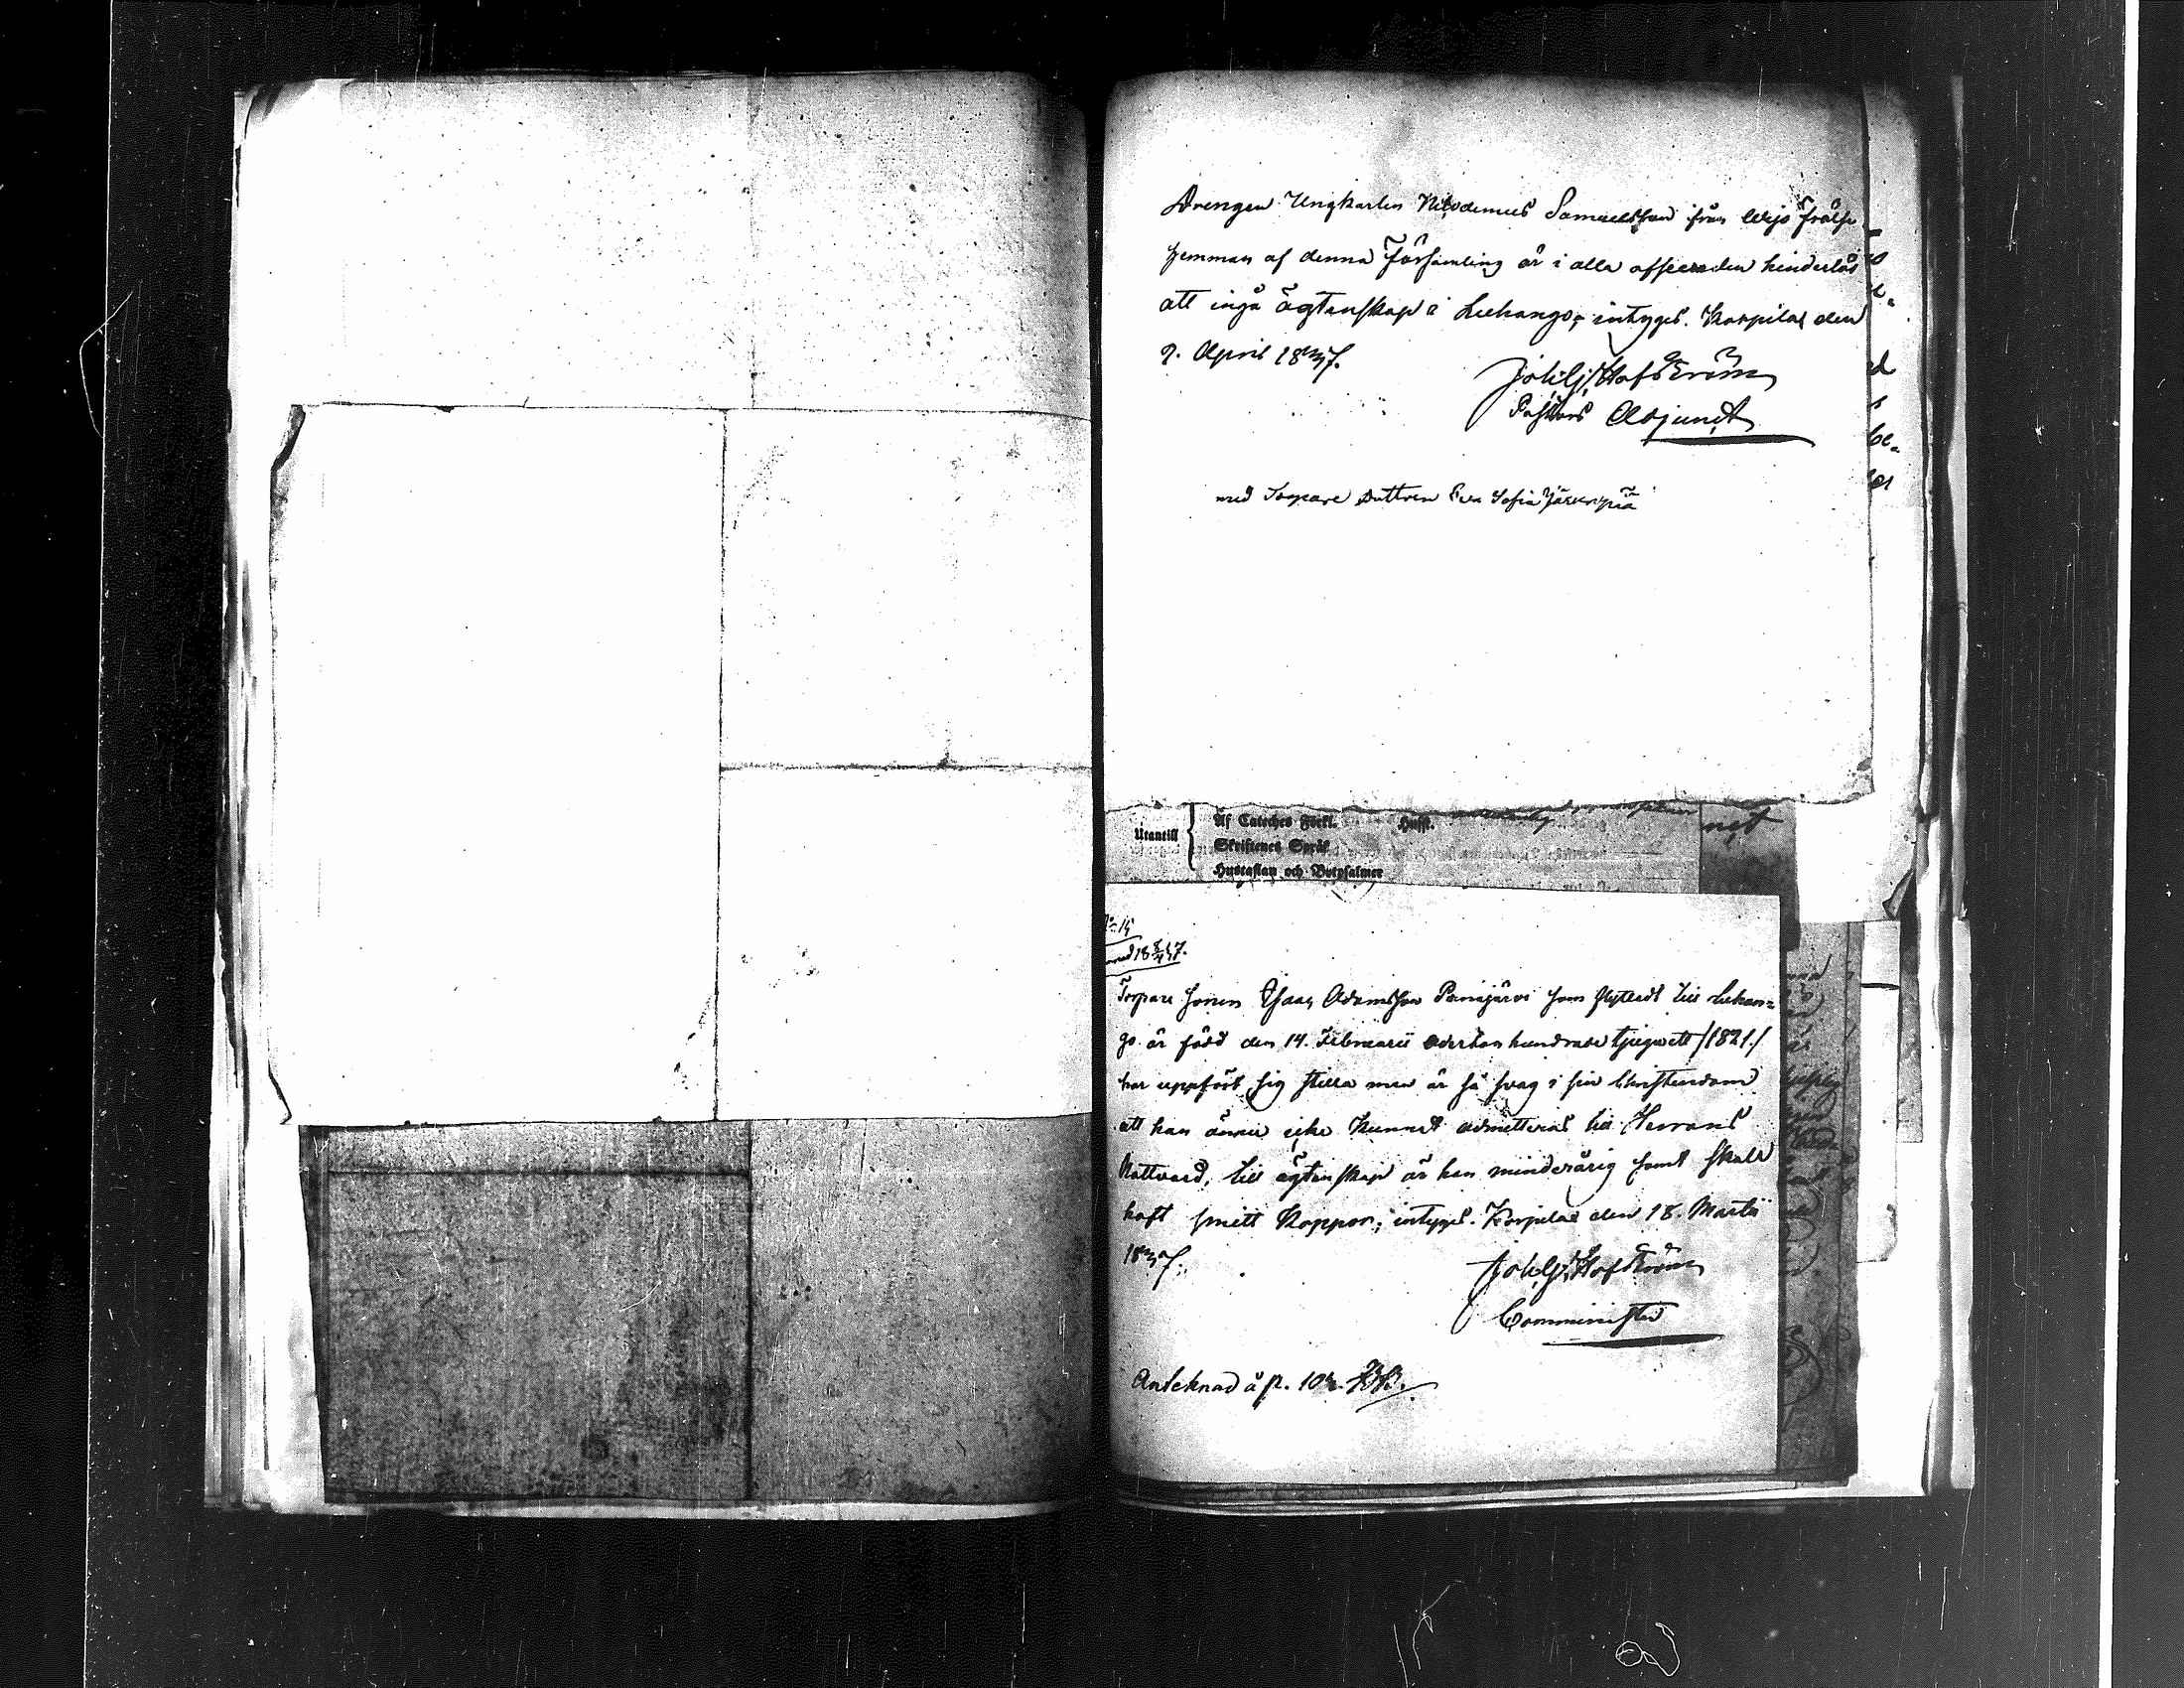 Drengen Ungkarlen Nikodemus Samuelsson från Wijo frälse
hemman af denna Församling är i alla afseenden hinderlös
att ingå ägtenskap i Luhango; intygas. Korpilax den
2. April 1837.
Joh. Gj. Hofström
Pastors Adjunct
med Torpare dottren Eva Sofia
Utantill
Af Cateches Förkl. Hufst.
Skriftenes Språk
Hustaflan och Botpsalmer
Torpare sonen Isaac Adamsson Panijärvi som flyttadt till Luhan=
go är född den 14. Februarii adertonhundrade tjuguett /1821./
har uppfört sig stilla men är så svag i sin Christendom
att han ännu icke kunnat admitteras till Herrans
Nattvard, till ägtenskap är han minderårig samt skall
haft smitt Koppor; intygas. Korpilax den 18. Martii
1837.
Joh. Gj. Hofström
Comminister
Anteknad å p. 102.